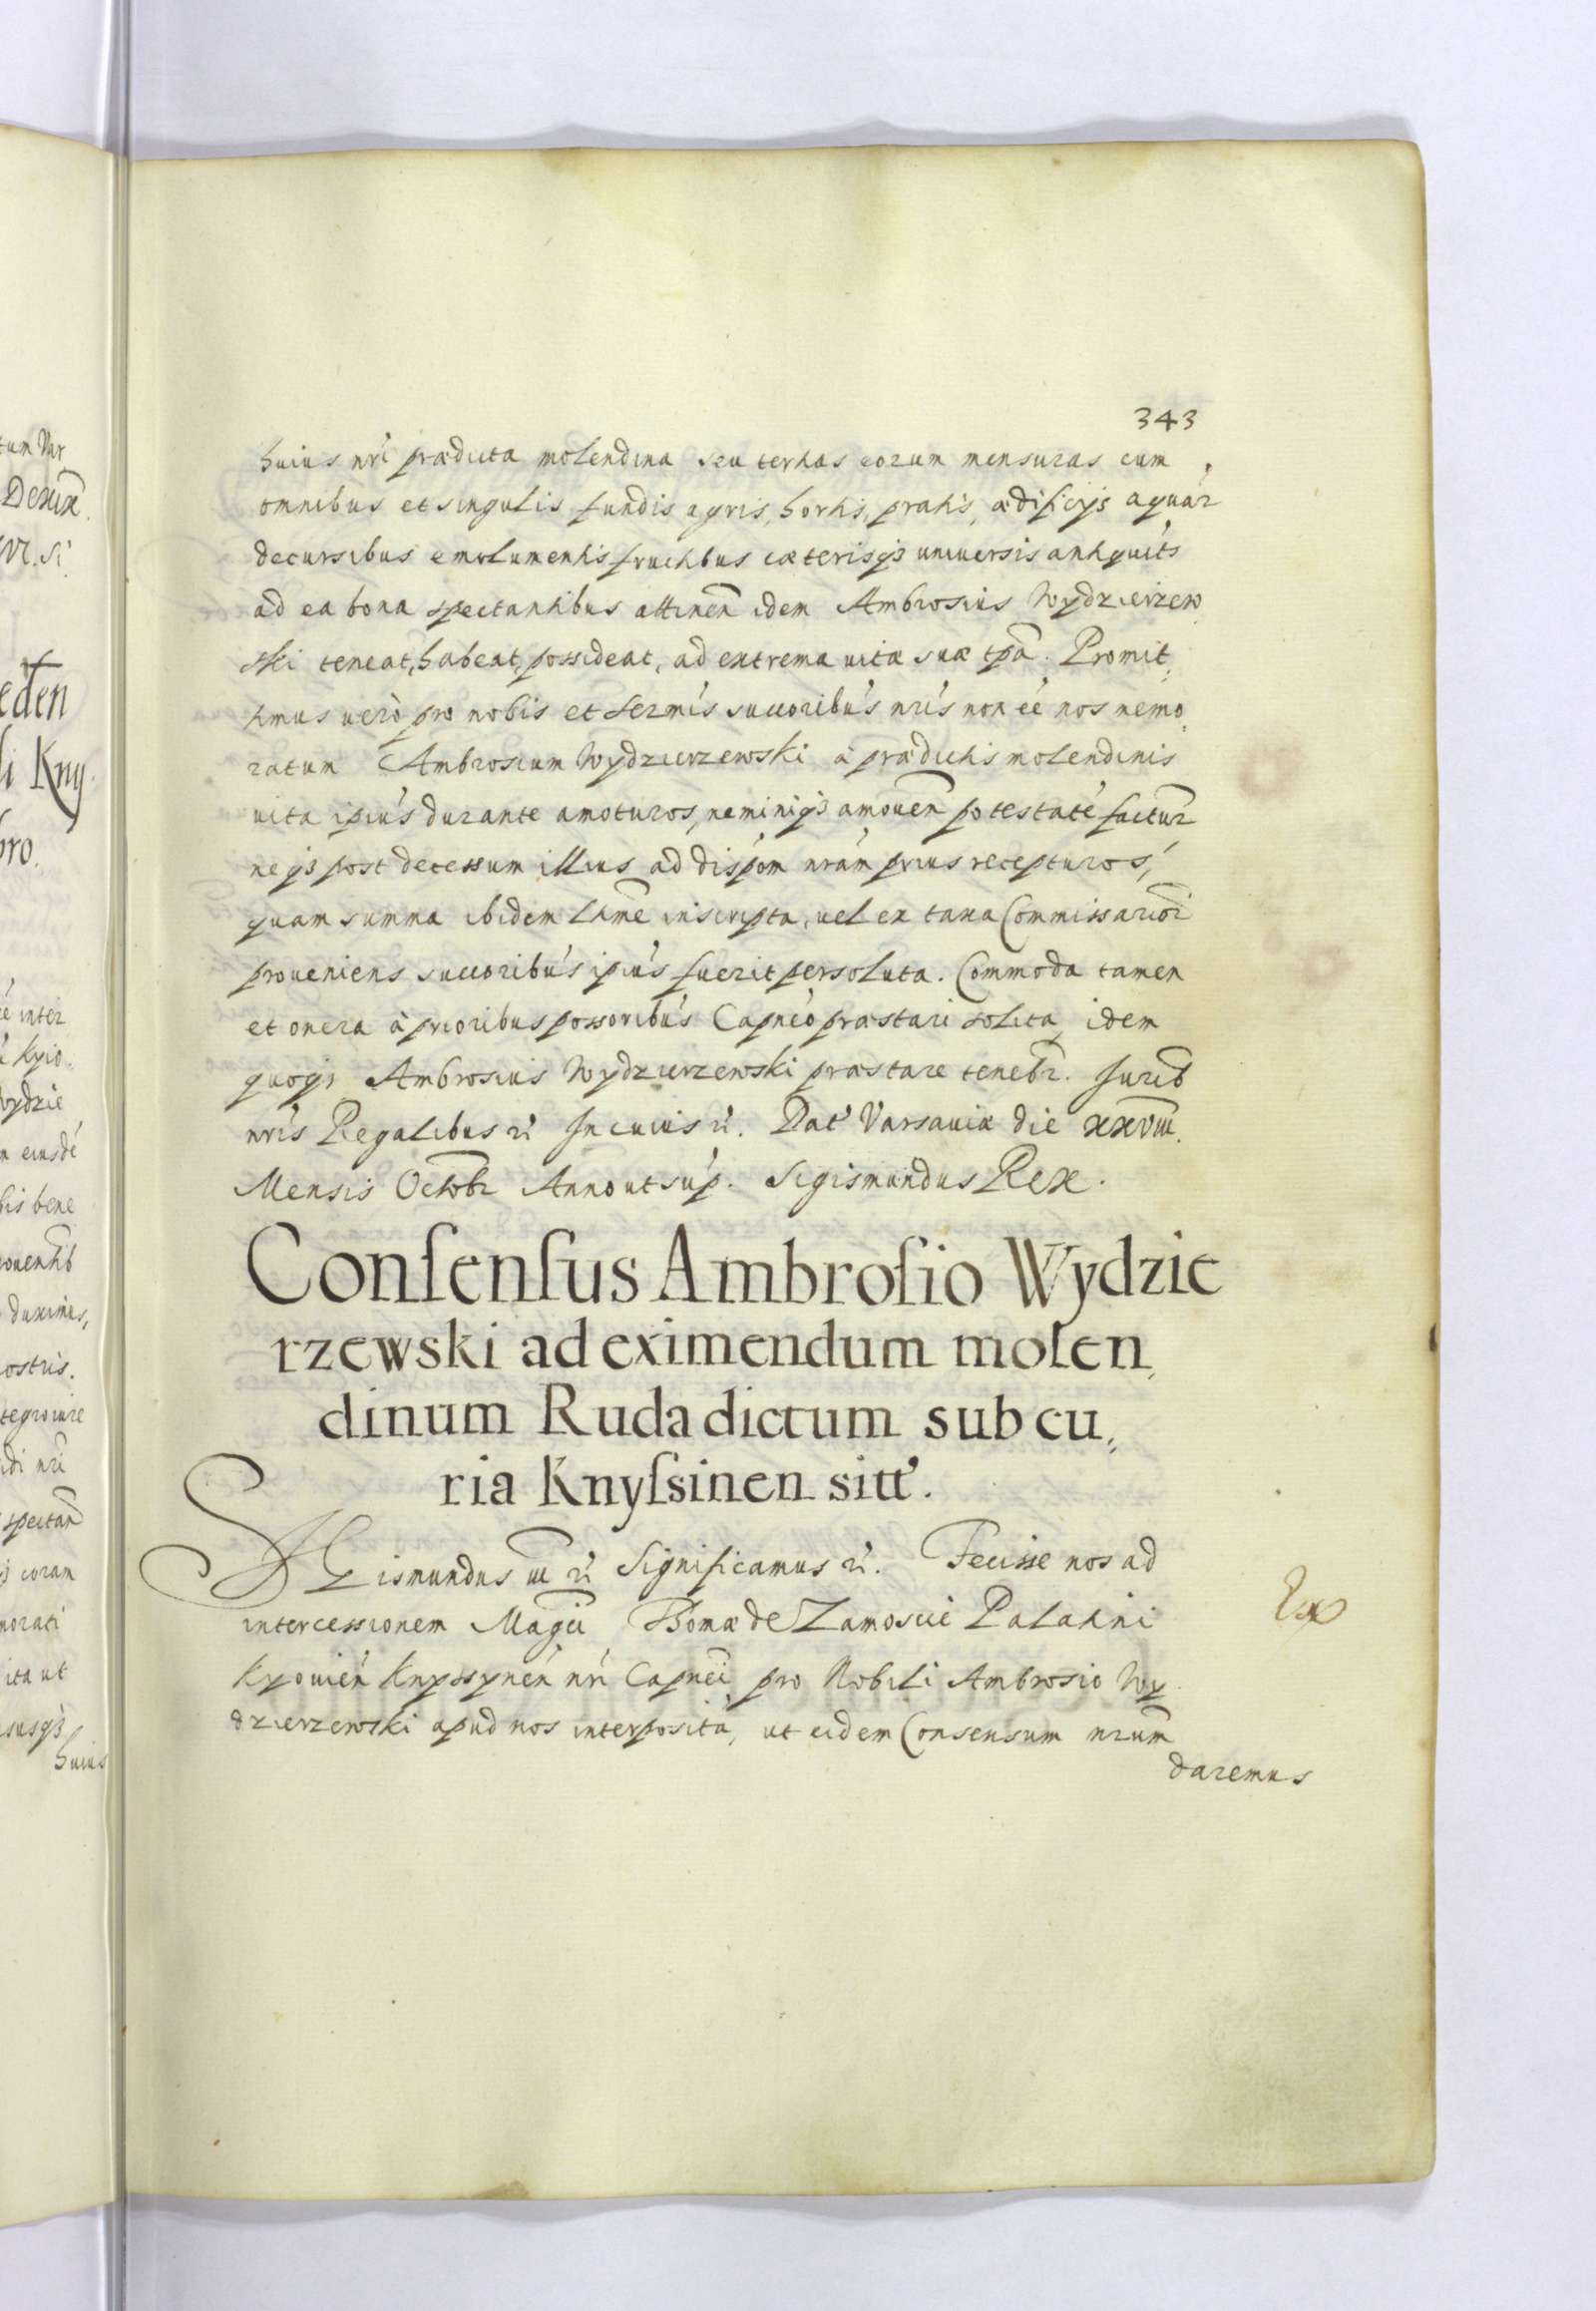 343
huius nri prædicta molendina seu tertias eorum mensuras cum
omnibus et singulis fundis agris, hortis, pratis, ædificijs aquar
decursibus emolumentis fructibus cæterisq3 uniuersis antiquits
ad ea bona spectantibus attinen idem Ambrosius Wydzierzew
ski teneat, habeat, possideat, ad extrema uitæ suæ tpa. Promit,
timus uerò pro nobis et sermis succoribus nris non eé nos nemo,
ratum Ambrosium Wydzierzewski à prædictis molendinis
uita ipius durante amoturos, neminiq3 amouen potestaté factur
neq3 post decessum illius ad dispom nram prius recepturos,
quam summa ibidem ltime inscripta, uel ex taxa Commissarior
proueniens succoribus ipius fuerit persoluta. Commoda tamen
et onera à prioribus possoribus Capneo præstari solita, idem
quoq3 Ambrosius Wydzierzewski præstare tenebr. Jurib
nris Regalibus zć Jn cuius zć. Dat Varsauiæ die xxviii.
Mensis Octobr Anno ut sup. Sigismundus Rex.
Conſenſus Ambroſio Wydzie
rzewski ad eximendum molen,
dinum Ruda dictum sub cu,
ria Knyſsinen sitt.
Sigismundus iii zć Significamus zć. Fecisse nos ad
intercessionem Magci Thomæ de Zamoscie Palatini
Kyouien Knyssynen nri Capnei pro Nobili Ambrosio Wy
dzierzewski apud nos interposità, ut eidem Consensum nrum
daremus